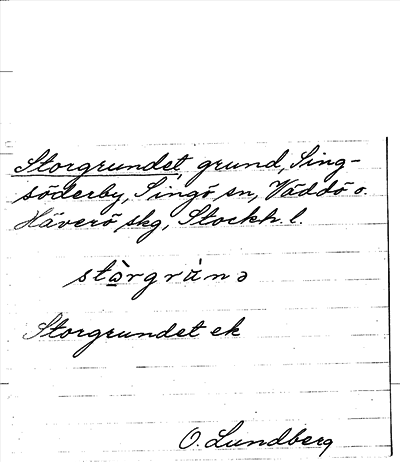 Storgrundet, grund, Sing-
söderby, Singö sn, Väddö o.
Häverö skg, Stockh. l.
stà̱rgrὰnə
Storgrundet ek
O. Lundberg